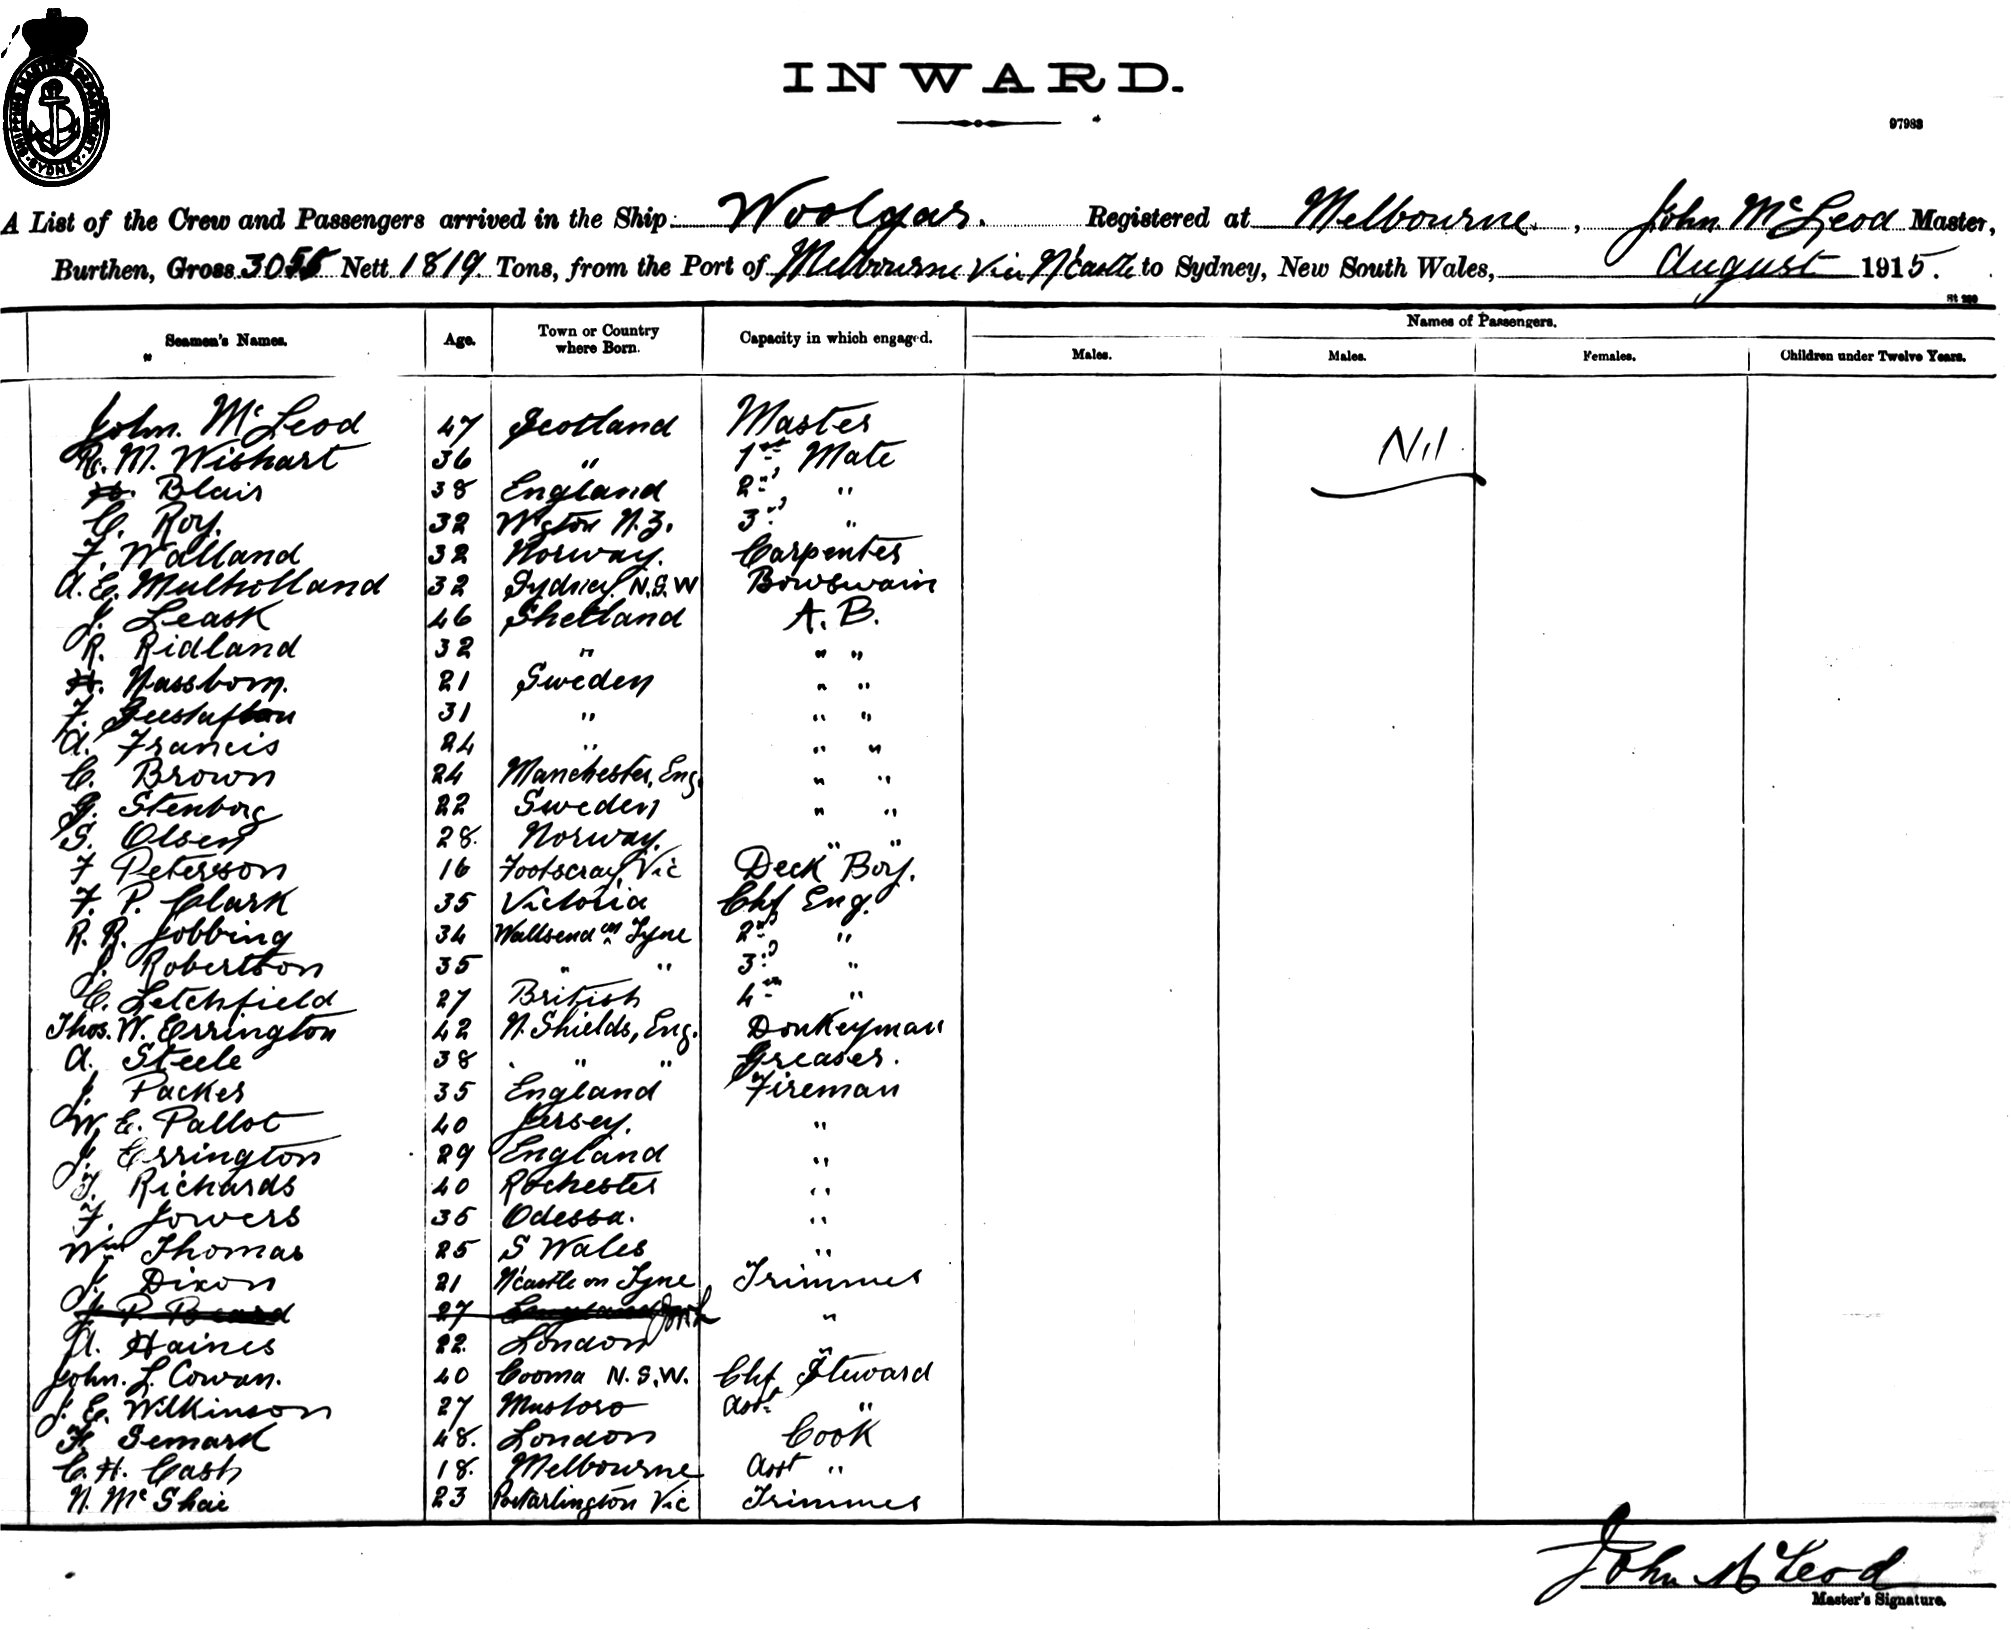 SHIPPING MASTERS DEPARTMENT SYDNEY
INWARD.
97983
A List of the Crew and Passengers arrived in the Ship Woolgar. Registered at Melbourne, John McLeod Master,
Burthen, Gross 3055 Nett 1819 Tons, from the Port of Melbourne via N'Castle to Sydney, New South Wales, August 1915.
St 220
Seamen's Names. Age. Town or Country where Born. Capacity in which engaged. Names of Passengers.
Males. Males. Females. Children under Twelve Years.
John. McLeod 47 Scotland Master Nil
R. M. Wishart 36 " 1st Mate
H. Blair 38 England 2nd "
C. Roy. 32 W'gton N.Z. 3rd "
F. Walland 32 Norway. Carpenter
A. E. Mulholland 32 Sydney N.S.W Bowswain
J. Leask 46 Shetland A. B.
R. Ridland 32 " " "
H. Nassbom. 21 Sweden " "
F. Gustafson 31 " " "
A. Francis 24 " " "
C. Brown 24 Manchester, Eng. " "
G. Stenborg 22 Sweden " "
S. Olsen 28. Norway. " "
F Peterson 16 Footscray, Vic Deck Boy.
F. P. Clark 35 Victoria Chf Eng.
R. R. Jobbing 34 Wallsend on Tyne 2nd "
J. Robertson 35 " " 3rd "
C. Letchfield 27 British 4th "
Thos. W. Errington 42 N. Shields, Eng. Donkeyman
A. Steele 38 " " Greaser.
J. Packer 35 England Fireman
W. E. Pallot 40 Jersey. "
J. Errington 29 England "
T. Richards 40 Rochester "
F. Jowers 35 Odessa. "
Wm Thomas 25 S Wales "
J. Dixon 21 N'castle on Tyne Trimmer
J. P. Beard 27 England "
A. Haines 22. London "
John. L. Cowan. 40 Cooma N.S.W. Chf Steward
J. E. Wilkinson 27 Asst. "
F. Semark 48. London Cook
C. H. Cash 18. Melbourne Asst "
N. McShae 23 Portarlington Vic Trimmer
John McLeod
Master's Signature.